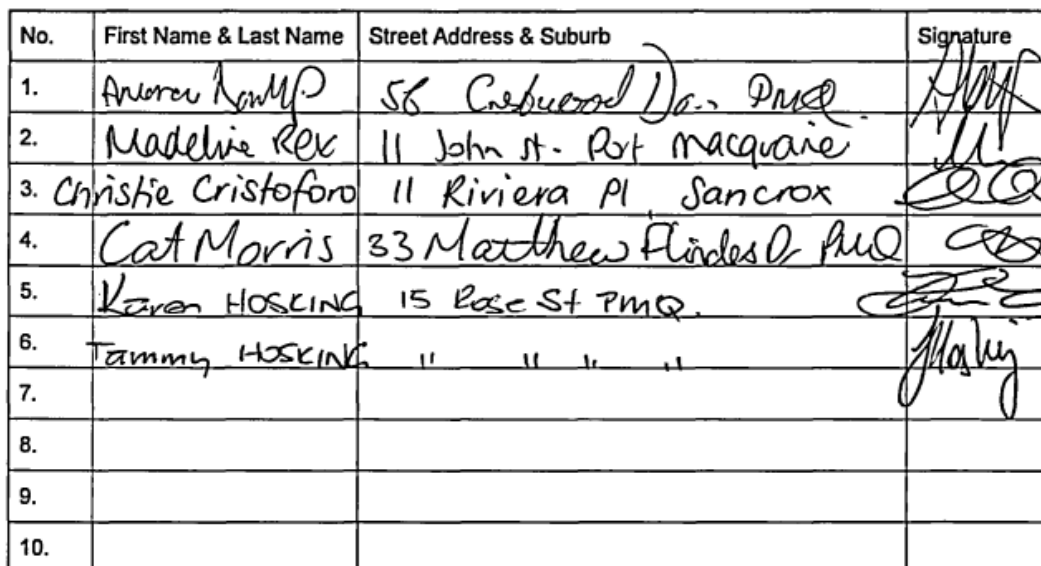 No. First Name & Last Name Street Address & Suburb Signature
1. Andrew 56 Crestwood PMQ
2. Madeline Rex 11 John St. Port Macquarie
3. Christie Cristoforo 11 Riviera Pl Sancrox
4. Cat Morris 33 Matthew Flinders Dr PMQ
5. Karen HOSKING 15 Rose St PMQ.
6. Tammy HOSKING " " " "
7.
8.
9.
10.